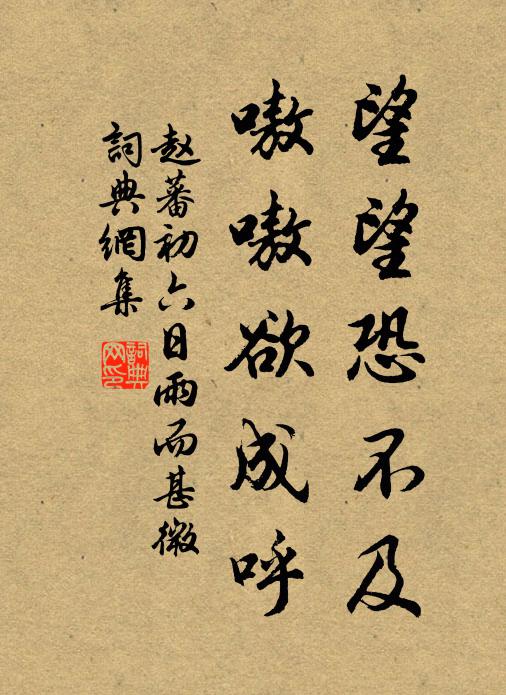 望望恐不及
嗷嗷欲成呼
赵蕃初六日雨而甚微
詞典網集
詞典
网印